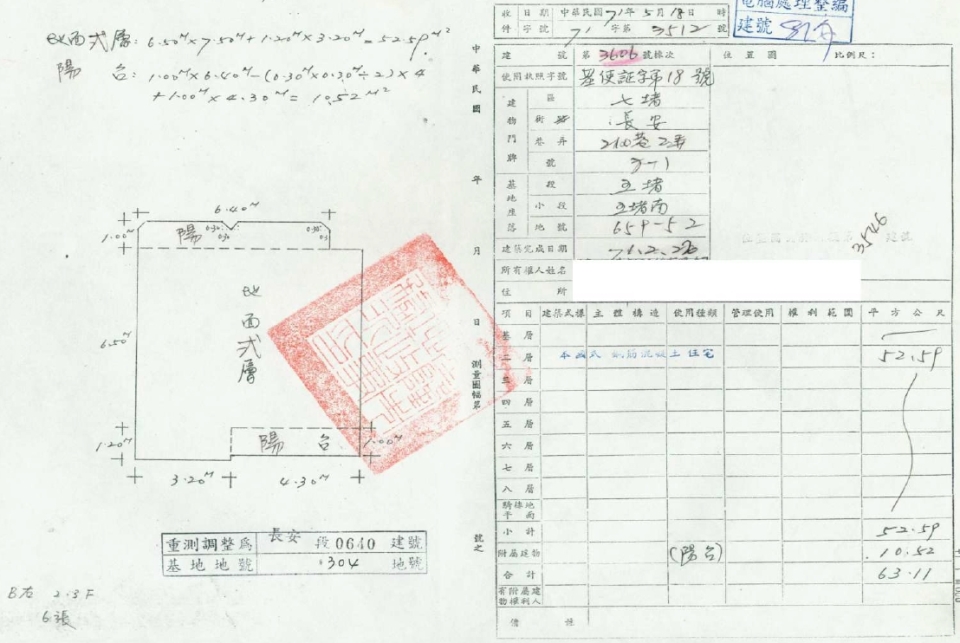 地面式層: 6.50M×7.50M+1.20M×3.20M=52.59M²
陽 台: 1.00M×6.40M-(0.30M×0.30M÷2)×4
+1.00M×4.30M=10.52M²
6.40M
1.00M
陽
0.30
0.30
0.30
6.50M
地面式層
1.20M
陽 台
1.00M
3.20M
4.30M
重測調整為 長安 段0640 建號
基地地號 304 地號
B右 2.3F
6張
中華民國 年 月 日 測量圖幅第 號之
收日期 中華民國71年5月18日 時
件字號 71 字第 3512 號
電腦處理整編
建號
建號 第3606號棟次
位置圖 比例尺:
使用執照字號 基使証字第18號
建物門牌
區 七堵
街路 長安
巷弄 2100巷2弄
號 3-1
基地坐落
段 五堵
小段 五堵南
地號 659-52
3546
建築完成日期 71.2.26
所有權人姓名
住所
項目 建築式樣 主體構造 使用種類 管理使用 權利範圍 平方公尺
基層
二層 本國式 鋼筋混凝土 住宅 52.59
三層
四層
五層
六層
七層
八層
騎樓地平面
小計 52.59
附屬建物 (陽台) 10.52
合計 63.11
有附屬建物權利人
備註